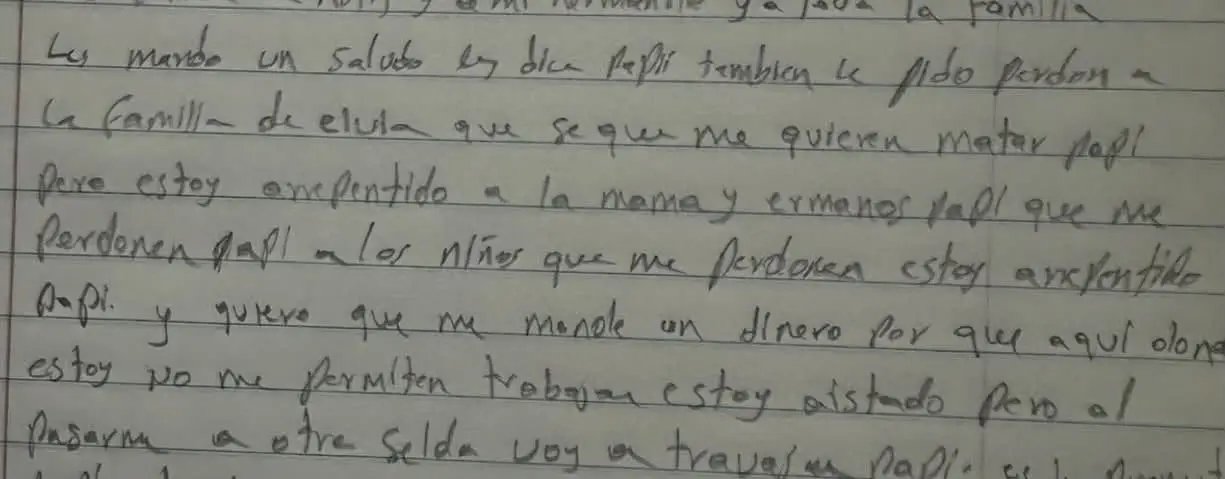 y a toda la familia
Les mando un saludo les dice papi tambien le pido perdon a
la familia de elvia que se que me quieren matar papi
pero estoy arrepentido a la mama y ermanos papi que me
perdonen papi a los niños que me perdonen estoy arrepentido
papi. y quiero que me mande un dinero por que aquí donde
estoy no me permiten trabajar estoy aistado pero al
pasarme a otra selda voy a travajar papi.